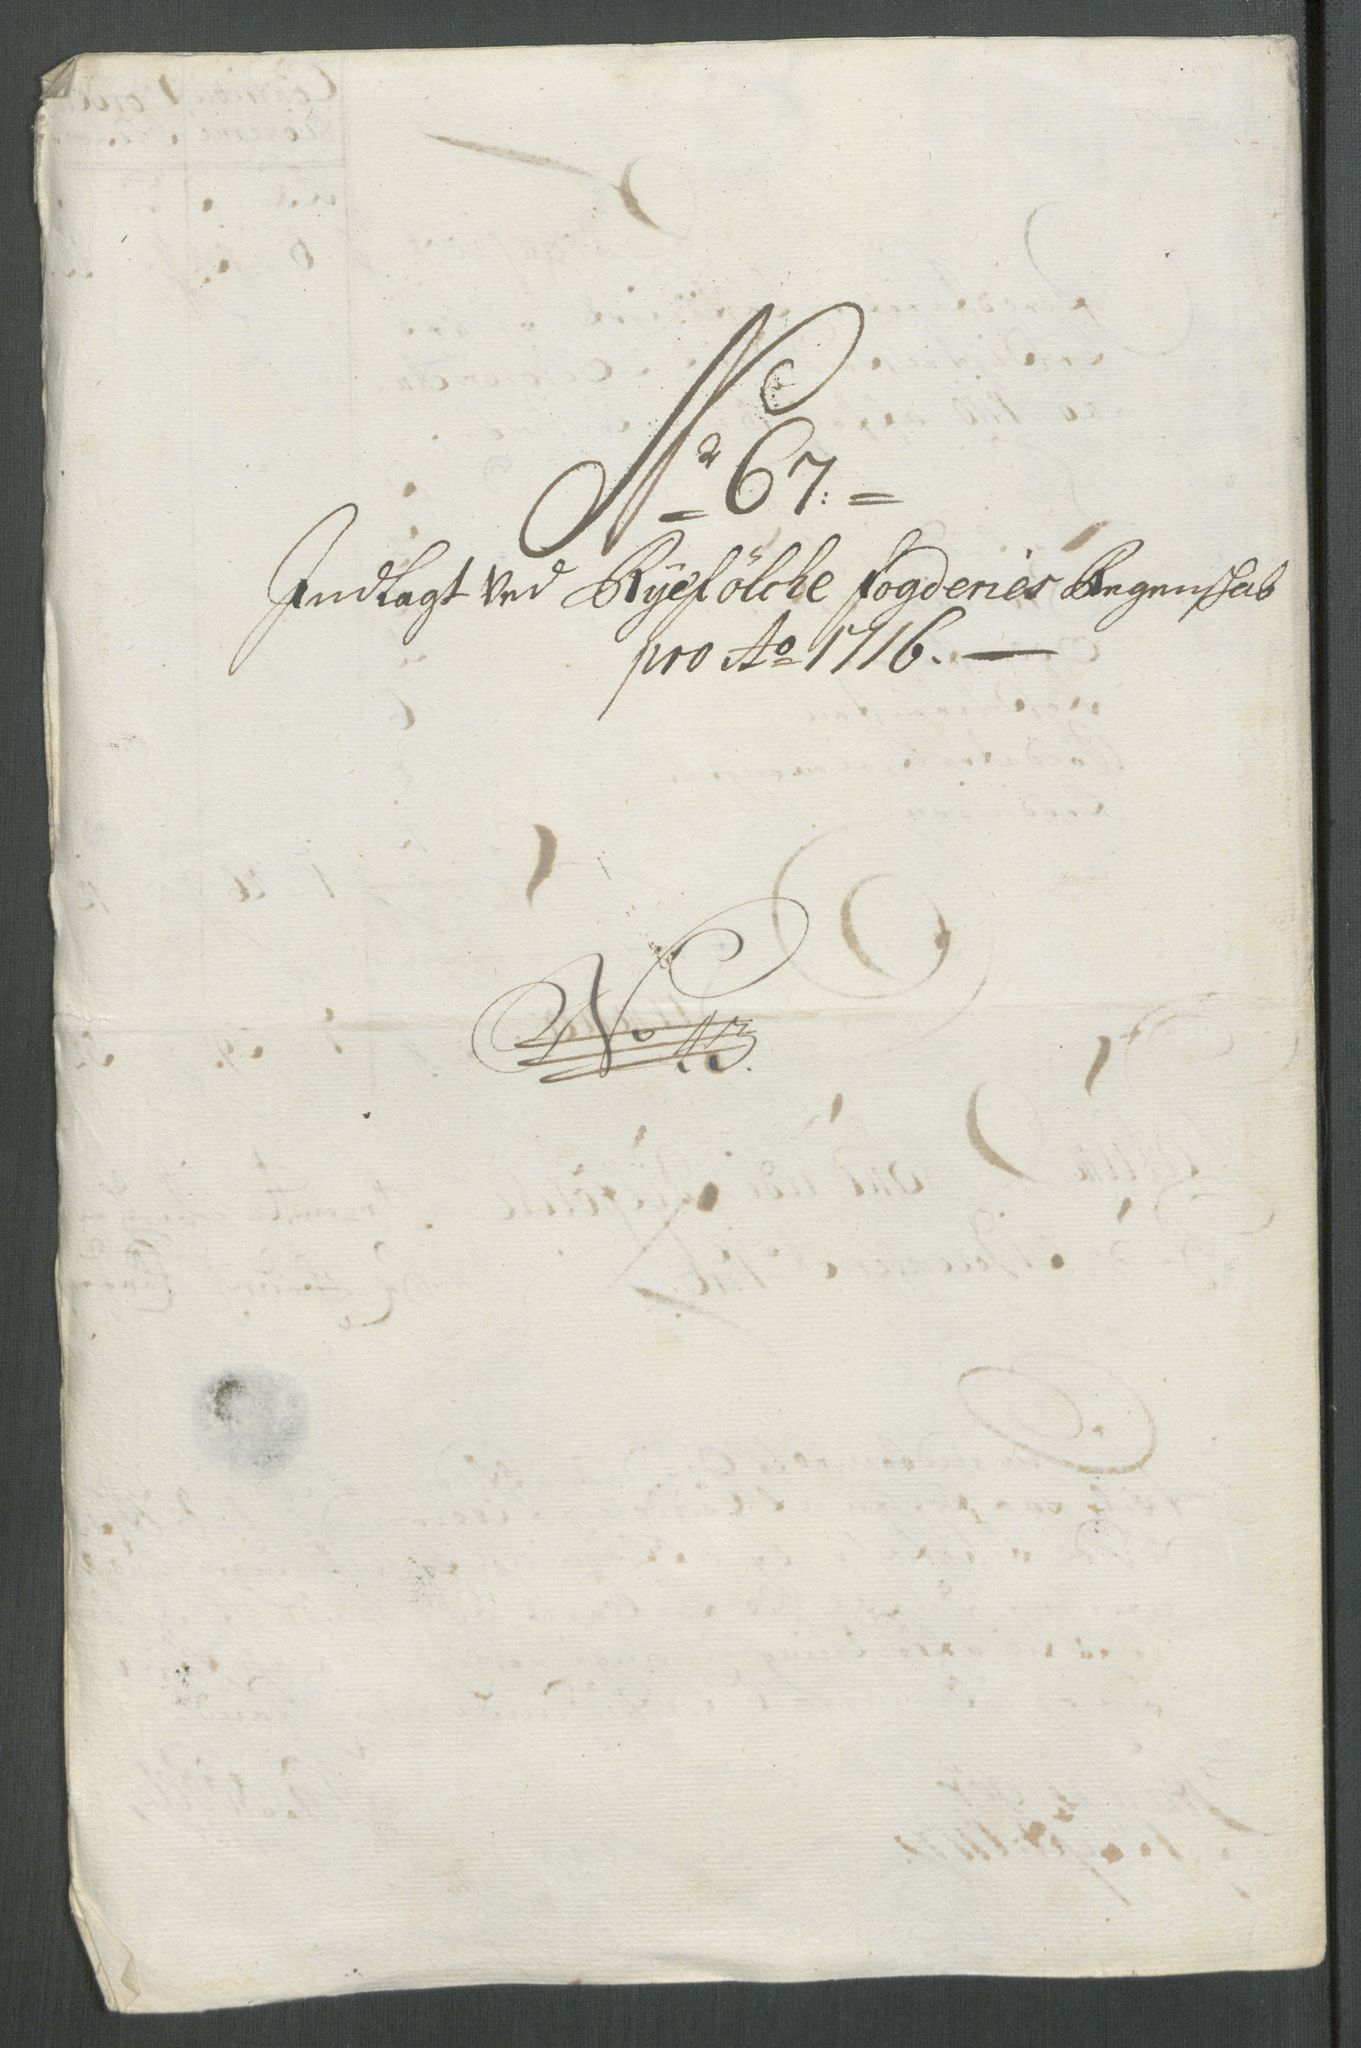 No 67:
Indlagt Ved Ryefölche fogderies Regenschab
pro Ao 1716.
No 13.